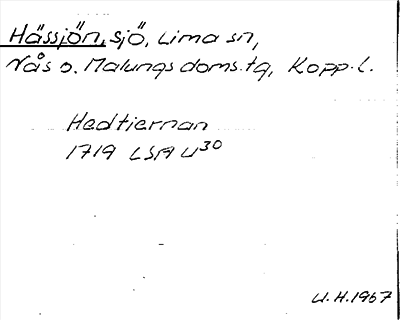 Hässjön, sjö, Lima sn,
Nås o. Malungs doms.tg, Kopp. l.
Hedtiernan
1719 LSA U30
U.H.1967